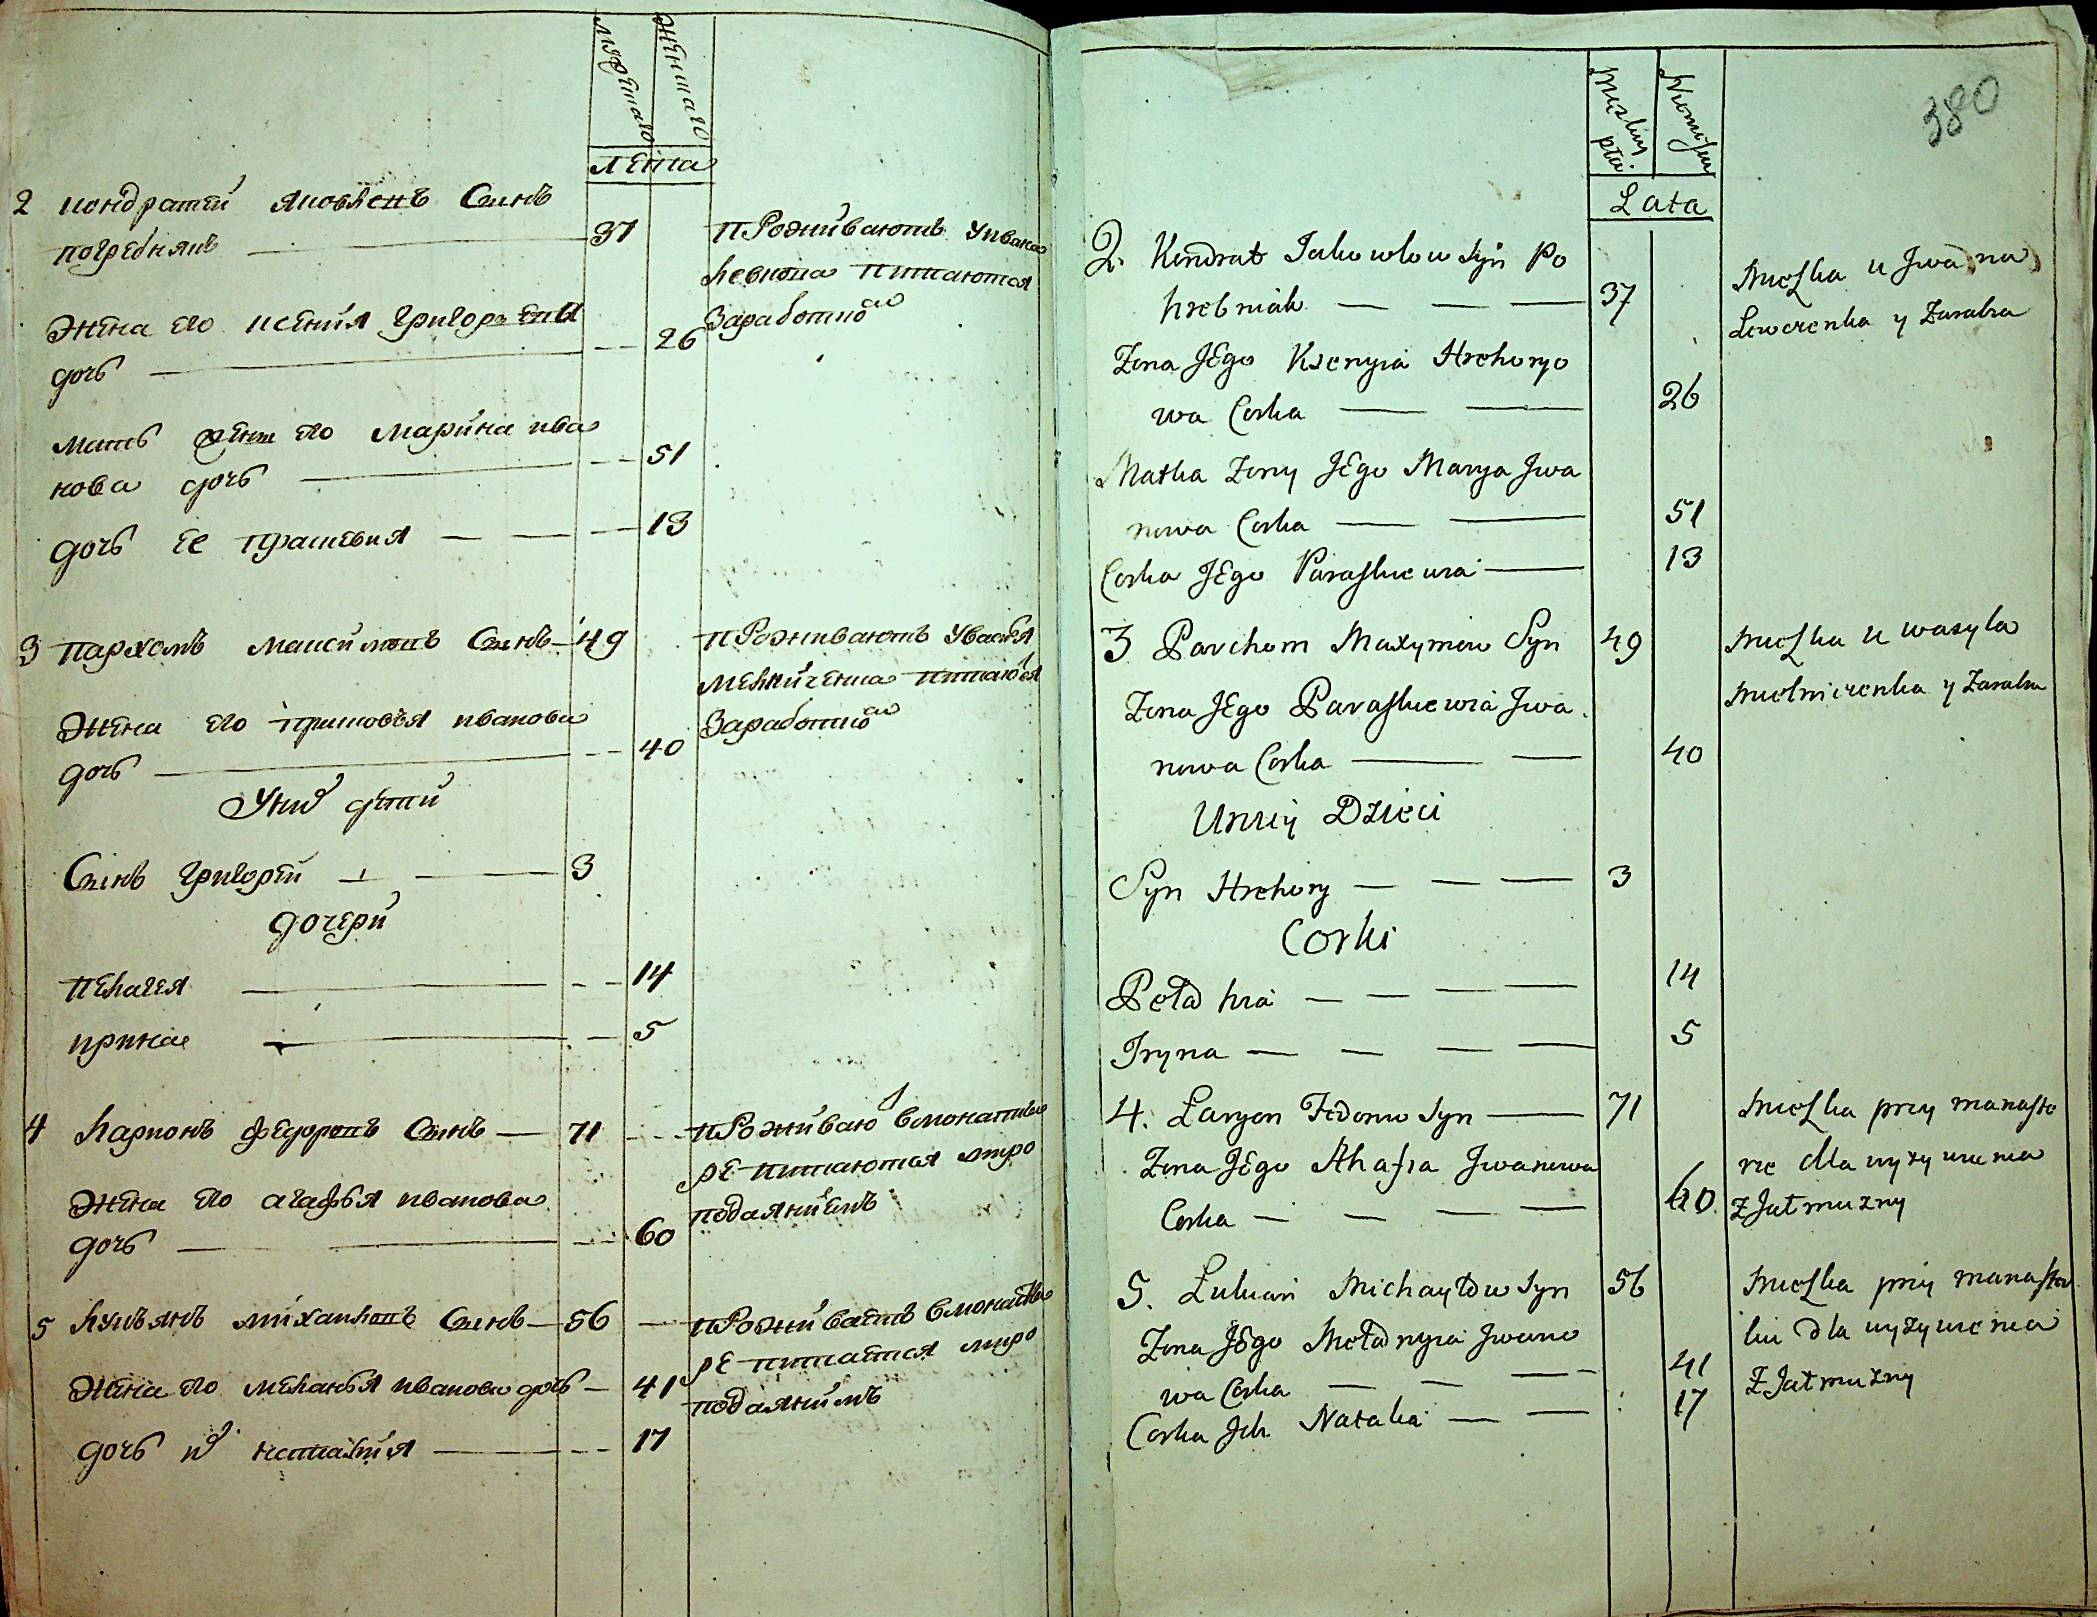 мужеска
женска
лета
2 кондратей яковленъ Сынъ
погребнякъ 37
проживаютъ у ивана
левченка питаются
Заработко
жена его ксения григорьева
дочь 26
мать жены его марина ива
нова дочь 51
дочь ее прасковия 13
3 пархомъ максимовъ Сынъ 49
проживаютъ у василя
мелниченка питаются
Заработко
жена его прасковья иванова
дочь 40
У них дети
Сынъ григорей 3
дочери
пелагея 14
ирина 5
4 ларионъ федоровъ Сынъ 71
проживаю в монасти
ре питаются миро
подаяниемъ
жена его агафья иванова
дочь 60
5 лукьянъ михаиловъ Сынъ 56
проживаетъ в монасты
ре питается миро
подаяниемъ
жена его меланья иванова дочь 41
дочь их наталия 17
380
Lata
2. Kondrat Jakowlow Syn Po
hrebniak 37
Mieszka u Jwana
Lewczenka y Zarabia
Zona Jego Ksenyia Hrehoryo
wa Corka 26
Matka Zony Jego Marya Jwa
nowa Corka 51
Corka Jego Paraskiewia 13
3 Parchom Maxymow Syn 49
Mieszka u wasyla
Mielniczenka y Zarabia
Zona Jego Paraskiewia Jwa
nowa Corka 40
U nich Dzieci
Syn Hrehory 3
Corki
Pełahia 14
Iryna 5
4. Laryon Fedorow Syn 71
Mieszka przy manaste
rze dla wyzywienia
z Jałmuzny
Zona Jego Ahafia Jwanowa
Corka 60
5. Łukian Michayłow Syn 56
Mieszka przy manaster
ku dla wyzywienia
z Jałmuzny
Zona Jego Mełanyia Jwano
wa Corka 41
Corka Jch Natalia 17